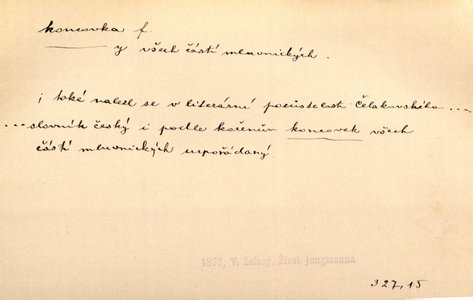 koncovka f
y všech částí mluvnických.
; také nalezl se v literární pozůstalosti Čelakovského ...
... slovník český i podle kořenův koncovek všech
částí mluvnických uspořádaný
1873, V. Zelený, Život Jungmanna
327,15